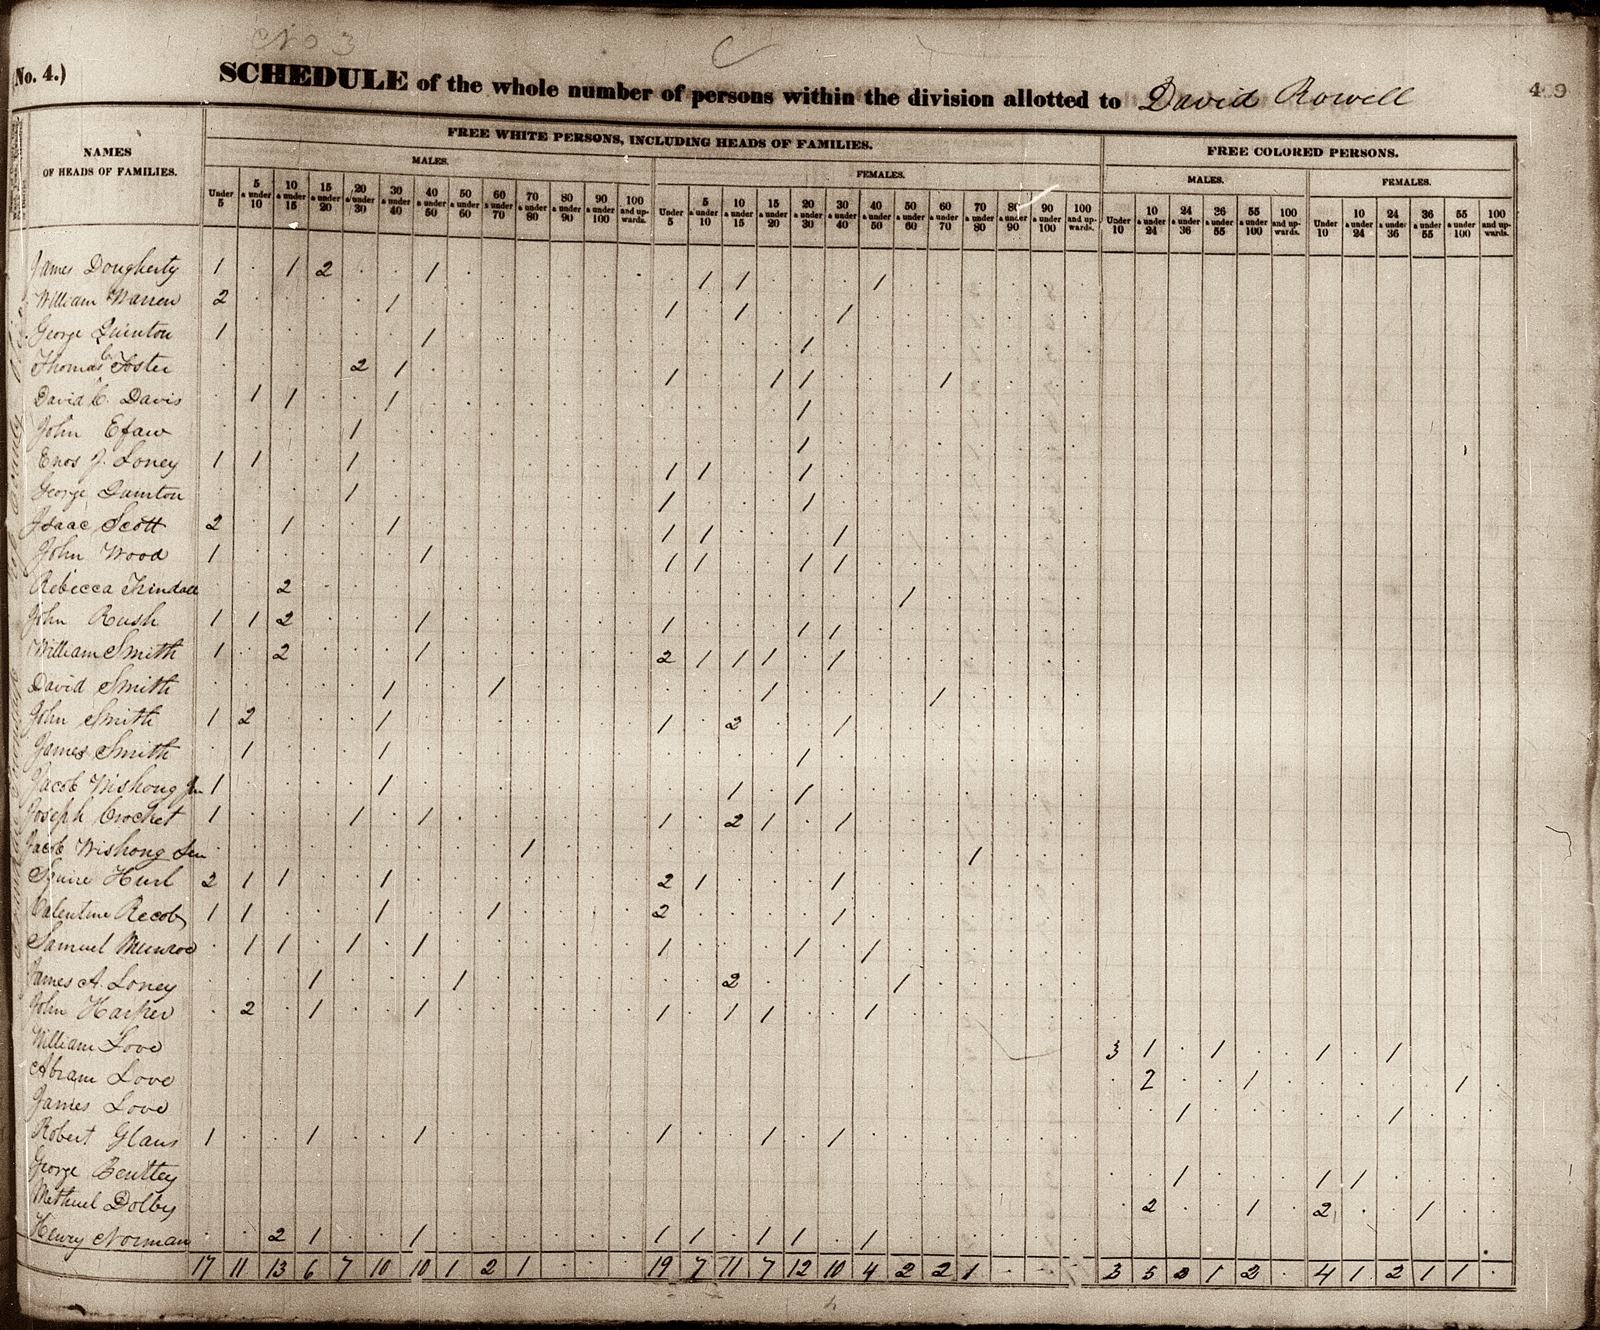 No 3 C
(No. 4.) SCHEDULE of the whole number of persons within the division allotted to David Rowell 409
NAMES OF HEADS OF FAMILIES.
FREE WHITE PERSONS, INCLUDING HEADS OF FAMILIES.
FREE COLORED PERSONS.
MALES. FEMALES. MALES. FEMALES.
Under 5 5 & under 10 10 & under 15 15 & under 20 20 & under 30 30 & under 40 40 & under 50 50 & under 60 60 & under 70 70 & under 80 80 & under 90 90 & under 100 100 and upwards. Under 5 5 & under 10 10 & under 15 15 & under 20 20 & under 30 30 & under 40 40 & under 50 50 & under 60 60 & under 70 70 & under 80 80 & under 90 90 & under 100 100 and upwards. Under 10 10 & under 24 24 & under 36 36 & under 55 55 & under 100 100 and upwards. Under 10 10 & under 24 24 & under 36 36 & under 55 55 & under 100 100 and upwards.
James Dougherty 1 1 2 1 1 1 1
William Warren 2 1 1 1 1
George Quinton 1 1 1
Thomas C. Foster 2 1 1 1 1 1
David C. Davis 1 1 1 1
John Efaw 1 1
Enos J. Loney 1 1 1 1 1 1
George Quinton 1 1 1
Isaac Scott 2 1 1 1 1 1
John Wood 1 1 1 1 1 1
Rebecca 2 1
John Rush 1 1 2 1 1 1 1
William Smith 1 2 1 2 1 1 1 1
David Smith 1 1 1 1
John Smith 1 2 1 1 2 1
James Smith 1 1 1
Jacob Wishong Jun 1 1 1 1
Joseph Crochet 1 1 1 1 2 1 1
Jacob Wishong Sen 1 1
Squire Hurl 2 1 1 1 2 1 1
Valentine Recob 1 1 1 1 2 1
Samuel Munroe 1 1 1 1 1 1 1
James A. Loney 1 1 2 1
John Harper 2 1 1 1 1 1 1
William Love 3 1 1 1 1
Abram Love 2 1 1
James Love 1 1
Robert Glaus 1 1 1 1 1 1
George Bentley 1 1 1
Methuel Dolby 2 1 2 1
Henry Norman 2 1 1 1 1 1 1 1
17 11 13 6 7 10 10 1 2 1 19 7 11 7 12 10 4 2 2 1 3 5 2 1 2 4 1 2 1 1